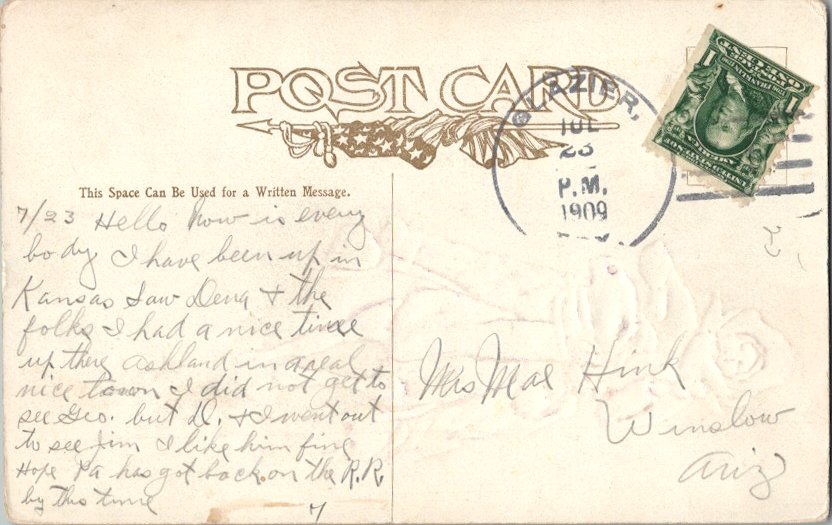 POST CARD
GLAZIER,
JUL
23
P.M.
1909
TEX.
UNITED STATES OF AMERICA
FRANKLIN
ONE CENT
1 1
This Space Can Be Used for a Written Message.
7/23 Hello how is every
body I have been up in
Kansas Saw Dena & the
folks I had a nice time
up there Ashland in a real
nice town I did not get to
see Geo. but D. & I went out
to see Jim I like him fine
Hope Pa has got back on the R.R.
by this time
Mrs Mae Hink
Winslow
Ariz